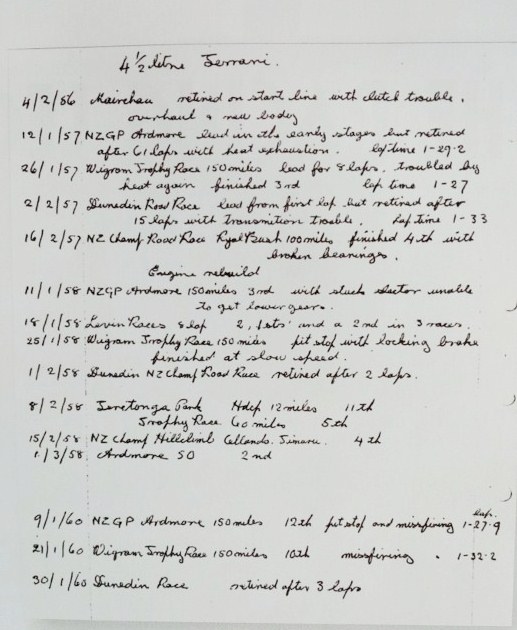 4 1/2 litre Ferrari.
4/2/56 Mairehau retired on start line with clutch trouble.
overhaul & new body
12/1/57 NZGP Ardmore lead in the early stages but retired
after 61 laps with heat exhaustion. lap time 1-29-2
26/1/57 Wigram Trophy Race 150 miles lead for 8 laps, troubled by
heat again finished 3rd lap time 1-27
2/2/57 Dunedin Road Race lead from first lap but retired after
15 laps with transmition trouble. Lap time 1-33
16/2/57 NZ Champ Road Race Ryal Bush 100 miles finished 4th with
broken bearings.
Engine rebuild
11/1/58 NZGP Ardmore 150 miles 3rd with stuck selector unable
to get lower gears.
18/1/58 Levin Races 8 lap 2, 1sts and a 2nd in 3 races.
25/1/58 Wigram Trophy Race 150 miles pit stop with locking brake
finished at slow speed.
1/2/58 Dunedin NZ Champ Road Race retired after 2 laps.
8/2/58 Teretonga Park Hdcp 12 miles 11th
Trophy Race 60 miles 5th
15/2/58 NZ Champ Hillclimb Timaru. 4th
1/3/58 Ardmore 50 2nd
9/1/60 NZGP Ardmore 150 miles 12th pit stop and missfiring 1-27.9
21/1/60 Wigram Trophy Race 150 miles 10th missfiring . 1-32.2
30/1/60 Dunedin Race retired after 3 laps